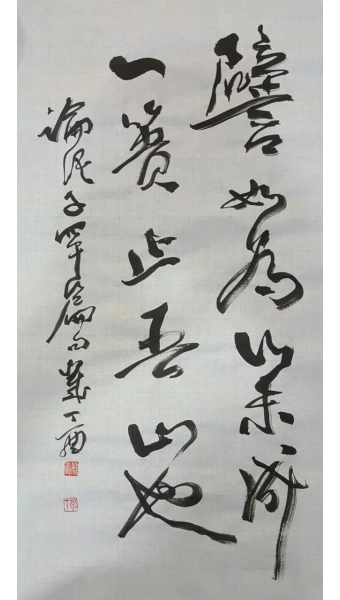 譬如為山未成
一簣止吾止也
論語子罕篇句歲丁酉